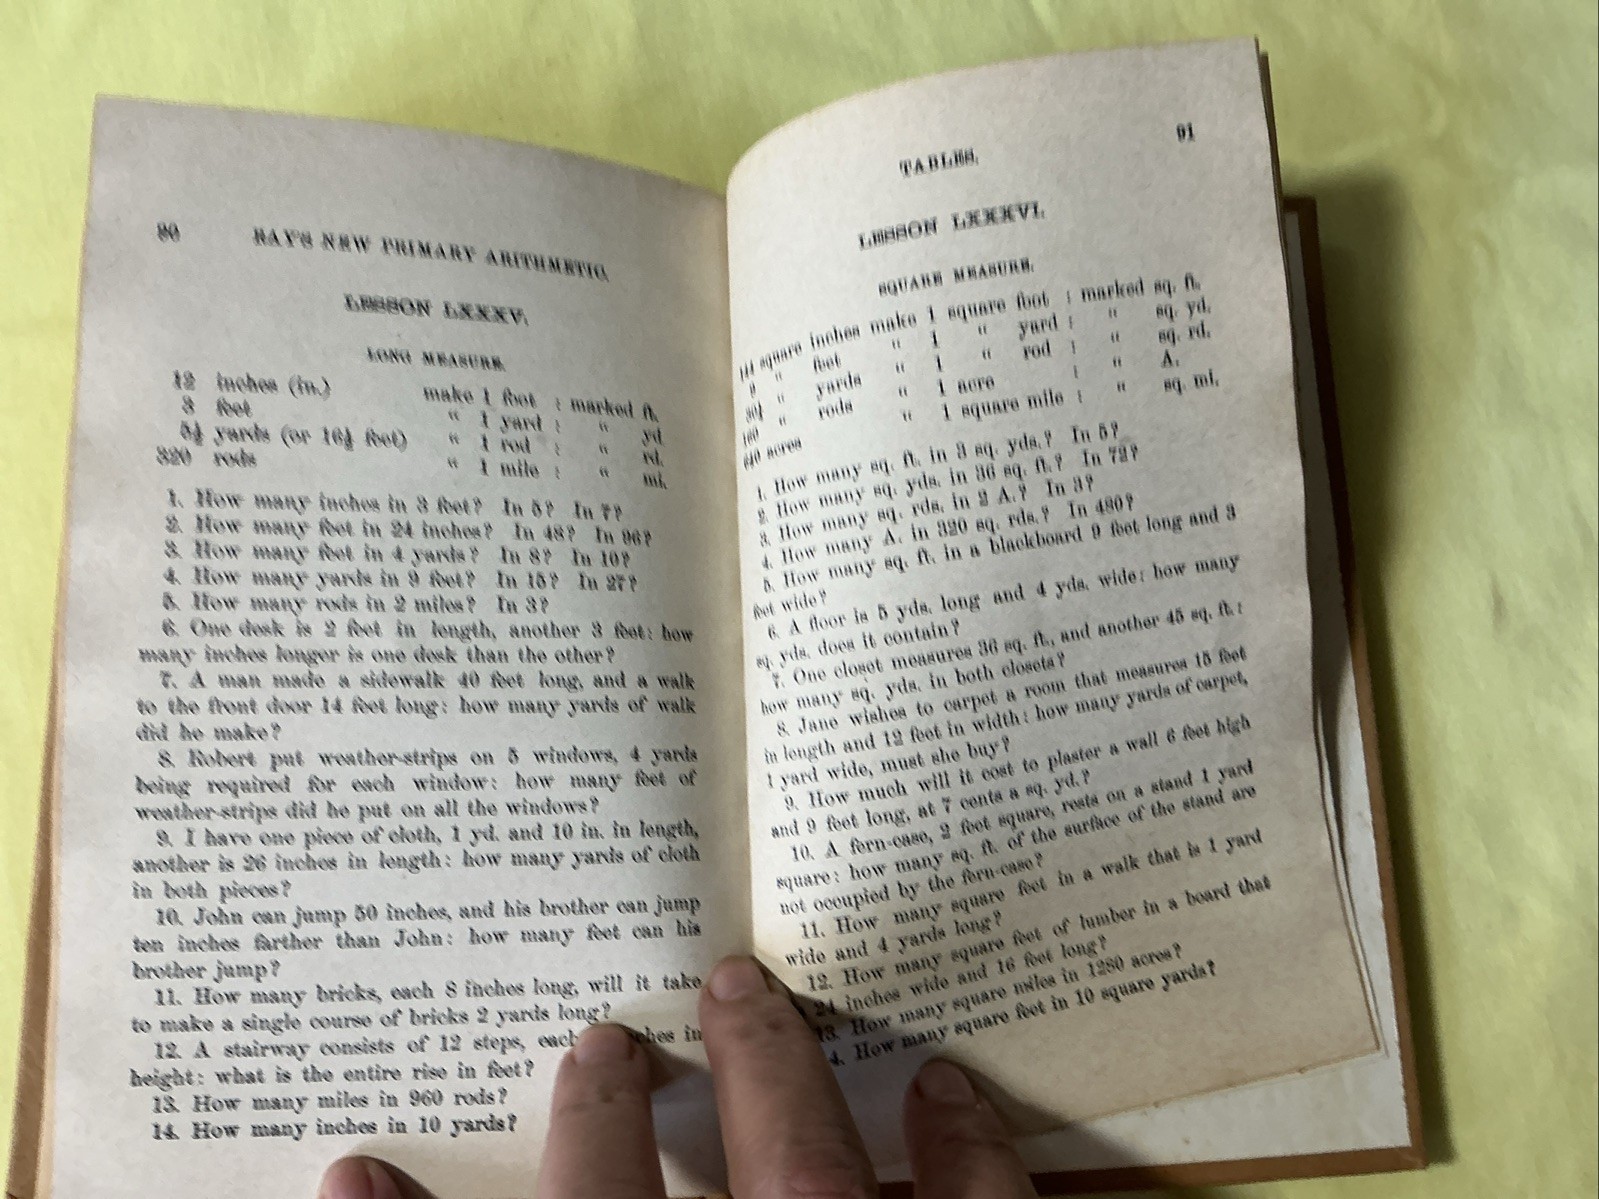 90 RAY'S NEW PRIMARY ARITHMETIC.
LESSON LXXXV.
LONG MEASURE.
12 inches (in.) make 1 foot : marked ft.
3 feet " 1 yard : " yd
5½ yards (or 16½ feet) " 1 rod : " rd.
320 rods " 1 mile : " mi.
1. How many inches in 3 feet? In 5? In 7?
2. How many feet in 24 inches? In 48? In 96?
3. How many feet in 4 yards? In 8? In 10?
4. How many yards in 9 feet? In 15? In 27?
5. How many rods in 2 miles? In 3?
6. One desk is 2 feet in length, another 3 feet: how
many inches longer is one desk than the other?
7. A man made a sidewalk 40 feet long, and a walk
to the front door 14 feet long: how many yards of walk
did he make?
8. Robert put weather-strips on 5 windows, 4 yards
being required for each window: how many feet of
weather-strips did he put on all the windows?
9. I have one piece of cloth, 1 yd. and 10 in. in length,
another is 26 inches in length: how many yards of cloth
in both pieces?
10. John can jump 50 inches, and his brother can jump
ten inches farther than John: how many feet can his
brother jump?
11. How many bricks, each 8 inches long, will it take
to make a single course of bricks 2 yards long?
12. A stairway consists of 12 steps, each in
height: what is the entire rise in feet?
13. How many miles in 960 rods?
14. How many inches in 10 yards?
TABLES. 91
LESSON LXXXVI.
SQUARE MEASURE.
144 square inches make 1 square foot : marked sq. ft.
9 " feet " 1 " yard : " sq. yd.
30¼ " yards " 1 " rod : " sq. rd.
160 " rods " 1 acre : " A.
640 acres " 1 square mile : " sq. mi.
1. How many sq. ft. in 3 sq. yds.? In 5?
2. How many sq. yds. in 36 sq. ft.? In 72?
3. How many sq. rds. in 2 A.? In 3?
4. How many A. in 320 sq. rds.? In 480?
5. How many sq. ft. in a blackboard 9 feet long and 3
feet wide?
6. A floor is 5 yds. long and 4 yds. wide: how many
sq. yds. does it contain?
7. One closet measures 36 sq. ft., and another 45 sq. ft.:
how many sq. yds. in both closets?
8. Jane wishes to carpet a room that measures 15 feet
in length and 12 feet in width: how many yards of carpet,
1 yard wide, must she buy?
9. How much will it cost to plaster a wall 6 feet high
and 9 feet long, at 7 cents a sq. yd.?
10. A fern-case, 2 feet square, rests on a stand 1 yard
square: how many sq. ft. of the surface of the stand are
not occupied by the fern-case?
11. How many square feet in a walk that is 1 yard
wide and 4 yards long?
12. How many square feet of lumber in a board that
24 inches wide and 16 feet long?
13. How many square miles in 1280 acres?
4. How many square feet in 10 square yards?